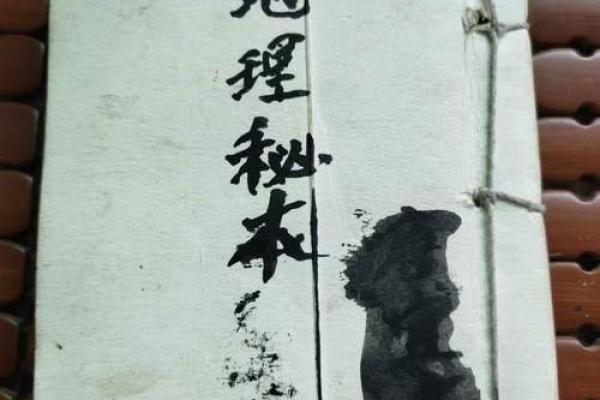 地理秘本